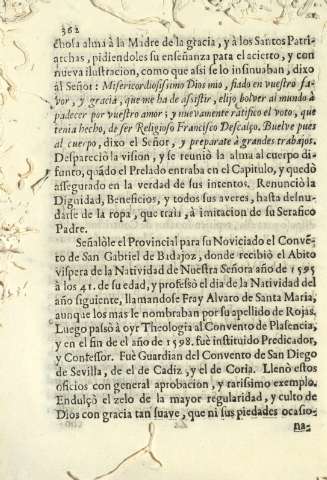 362
chosa alma à la Madre de la gracia, y à los Santos Patri-
archas, pidiendoles su enseñanza para el acierto, y con
nueva ilustracion, como que assi se lo insinuaban, dixo
al Señor: Misericordiosissimo Dios mio, fiado en vuestro fa-
vor, y gracia, que me ha de assistir, elijo bolver al mundo à
padecer por vuestro amor; y nuevamente ratifico el voto, que
tenia hecho, de ser Religioso Francisco Descalço. Buelve pues
al cuerpo, dixo el Señor, y preparate à grandes trabajos.
Despareciò la vision, y se reuniò la alma al cuerpo di-
funto, quãdo el Prelado entraba en el Capitulo, y quedò
assegurado en la verdad de sus intentos. Renunciò la
Dignidad, Beneficios, y todos sus averes, hasta desnu-
darse de la ropa, que traìa, à imitacion de su Serafico
Padre.
Señalòle el Provincial para su Noviciado el Convẽ-
to de San Gabriel de Badajoz, donde recibiò el Abito
vispera de la Natividad de Nuestra Señora año de 1595
à los 41. de su edad, y professò el dia de la Natividad del
año siguiente, llamandose Fray Alvaro de Santa Maria,
aunque los mas le nombraban por su apellido de Rojas.
Luego passò à oyr Theologia al Convento de Plasencia,
y en el fin de el año de 1598. fuè instituido Predicador,
y Confessor. Fuè Guardian del Convento de San Diego
de Sevilla, de el de Cadiz, y el de Coria. Llenò estos
oficios con general aprobacion, y rarissimo exemplo.
Endulçò el zelo de la mayor regularidad, y culto de
Dios con gracia tan suave, que ni sus piedades ocasio-
na-